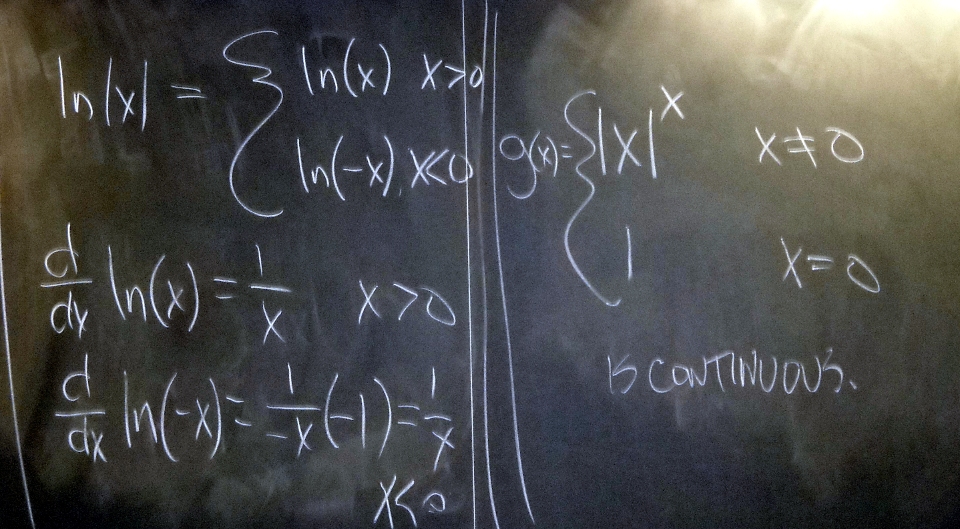 ln|x| = { ln(x) x>0
ln(-x), x<0
d/dx ln(x) = 1/x x>0
d/dx ln(-x) = 1/-x (-1) = 1/x
x<0
g(x) = { |x|^x x≠0
1 x=0
IS CONTINUOUS.